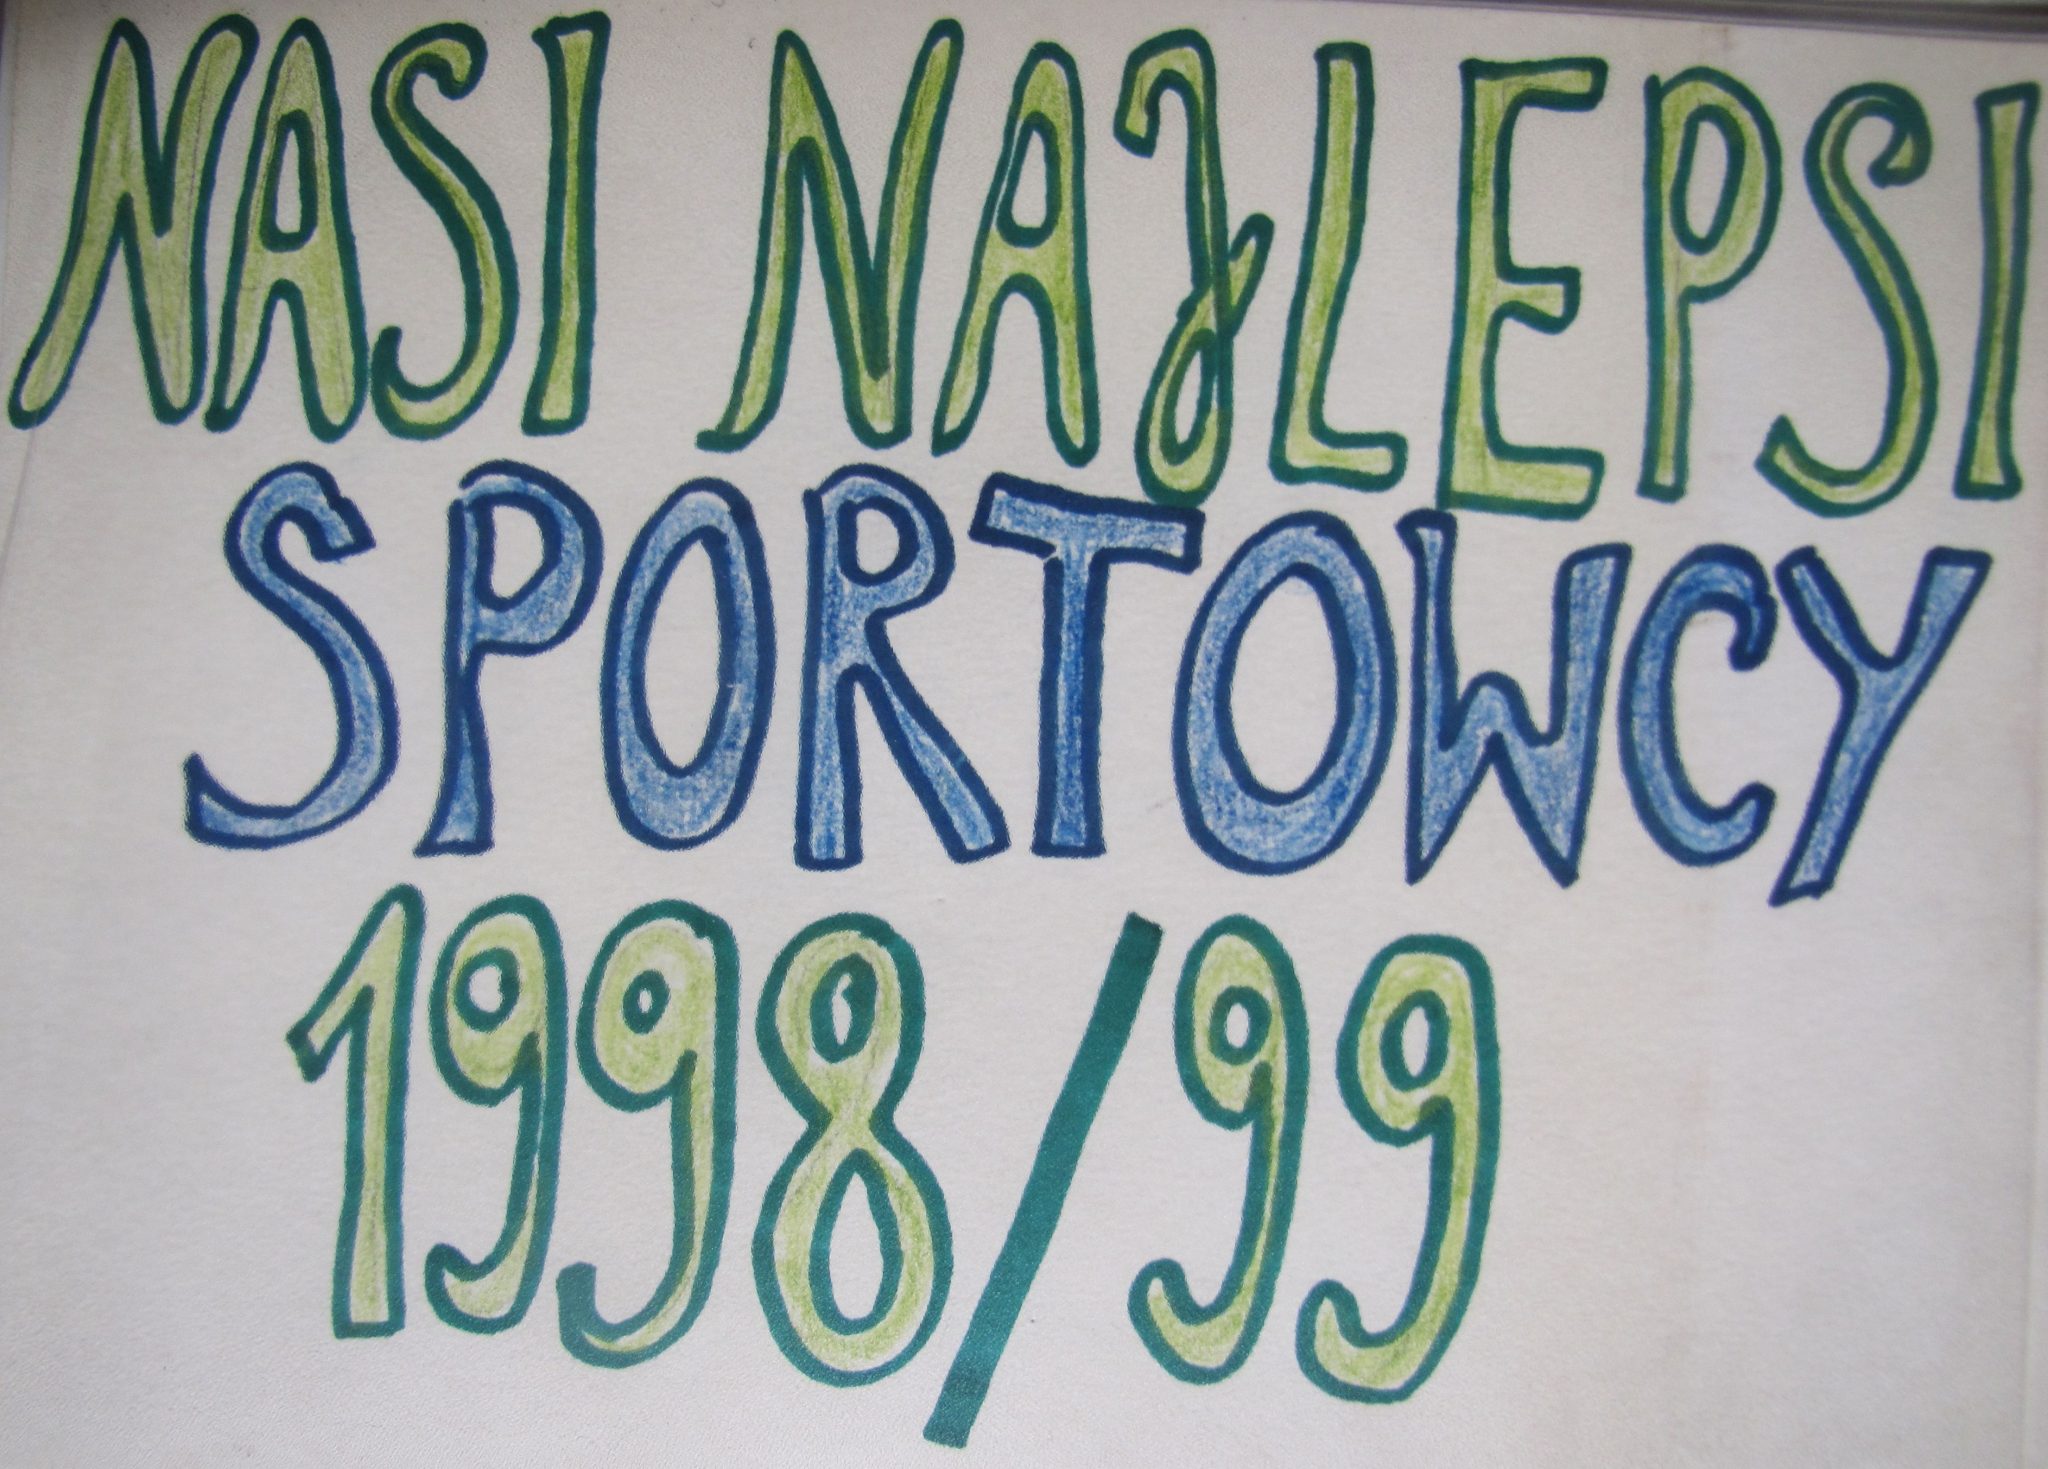 NASI NAJLEPSI
SPORTOWCY
1998/99